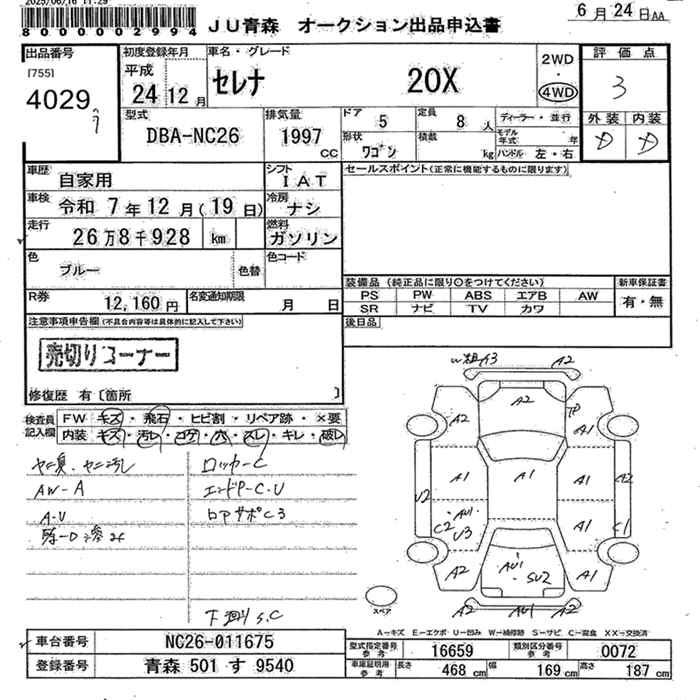 2025/06/16 11:29
800000002994
JU青森 オークション出品申込書
6月24日AA
出品番号
[755]
4029
初度登録年月
平成
24 12月
車名・グレード
セレナ 20X
2WD
・
4WD
評価点
3
外装 内装
D D
型式
DBA-NC26
排気量
1997
CC
ドア
5
定員
8 人
ディーラー・並行
形状
ワゴン
積載
kg
モデル年式 年
ハンドル 左・右
車歴
自家用
シフト
IAT
セールスポイント(正常に機能するものに限ります)
車検
令和 7年12月(19日)
冷房
ナシ
走行
26万8千928 km
燃料
ガソリン
色
ブルー
色替
色コード
装備品 (純正品に限り○をつけてください)
PS PW ABS エアB AW
SR ナビ TV カワ
新車保証書
有・無
R券
12,160円
名変通知期限
月 日
後日品
注意事項申告欄(不具合内容等は具体的に記入して下さい)
売切りコーナー
修復歴 有〔箇所 〕
検査員記入欄
FW キズ・飛石・ヒビ割・リペア跡・×要
内装 キズ・汚レ・コゲ・穴・スレ・キレ・破レ
ヤニ臭、ヤニ汚レ
AW-A
A-U
ロッカーC
エンドP-C.U
ロアサポC3
下廻りS.C
A3 A2
A2
A2 A1
A1 A1 A1 A2
U2
AU1
C2
U3
A1 C1
A2 AU1
SU2
A1
A2 AU1 A2
スペア
A―キズ E―エクボ・U―凹み W―補修跡 S―サビ C―腐食 XX―交換済
車台番号
NC26-011675
登録番号
青森 501 す 9540
型式指定番号
参考
16659
類別区分番号
参考
0072
車庫証明用
参考
長さ 468 cm 幅 169 cm 高さ 187 cm